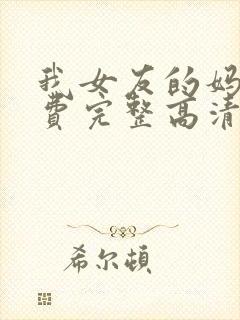 我女友的妈
费完整高清
希尔顿